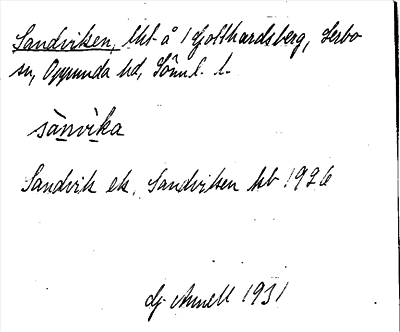 Sandviken, lht å 1 Gotthardsberg, Lerbo
sn, Oppunda hd, Söml. l.
sànvìka
Sandvik ek. Sandviken kb 1926
Gj Annell 1931